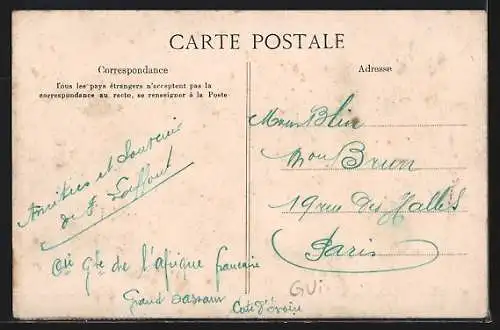 CARTE POSTALE
Correspondance
Tous les pays étrangers n'acceptent pas la
correspondance au recto, se renseigner à la Poste
Amitiés et Souvenir
de F.
Cie gle de l'afrique francaise
Grand Bassam
Cote d'Ivoire
Adresse
Blin
Mon Brun
19 rue des Halles
Paris
GUI